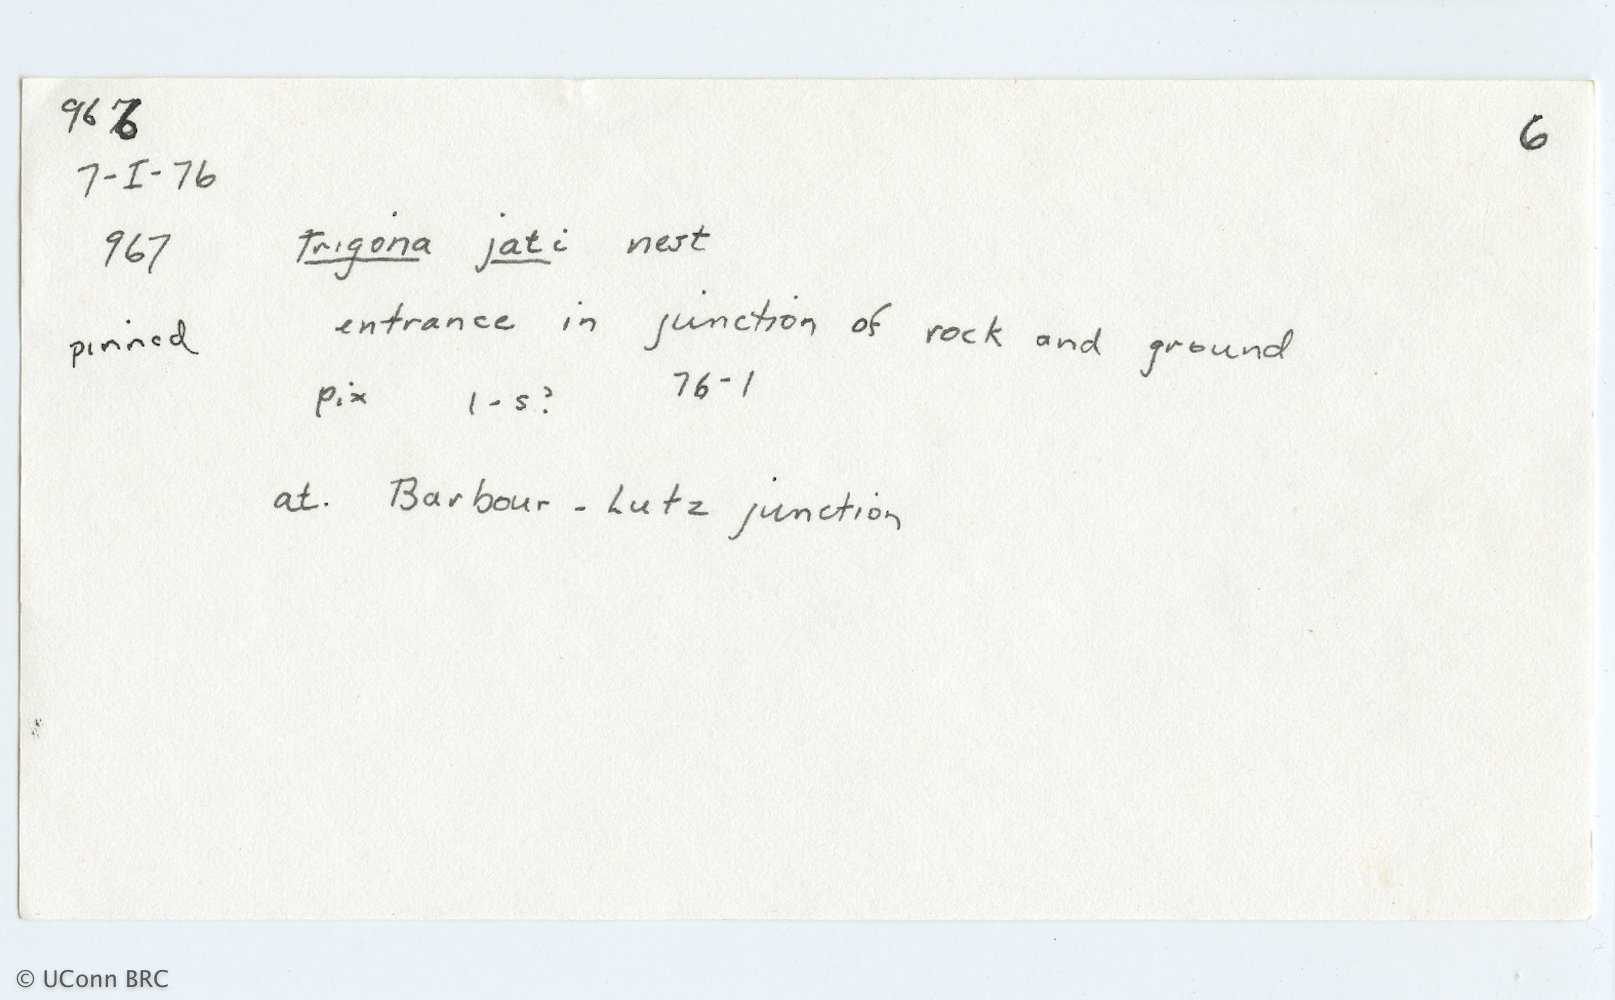 966
6
7-I-76
967 Trigona jati nest
pinned entrance in junction of rock and ground
pix 1-5? 76-1
at. Barbour - Lutz junction
© UConn BRC